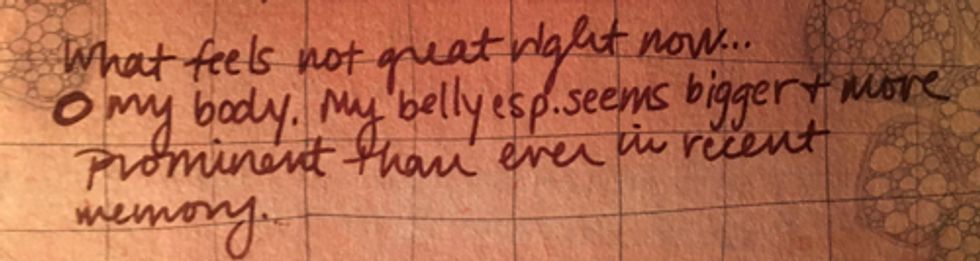 What feels not great right now...
O my body. My belly esp. seems bigger + more
prominent than ever in recent
memory.